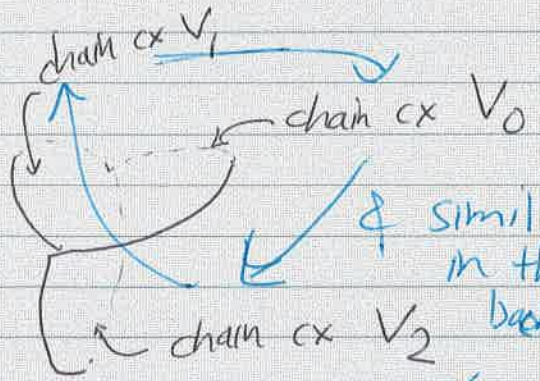 chain cx V₁
chain cx V₀
& simil
in th
chain cx V₂